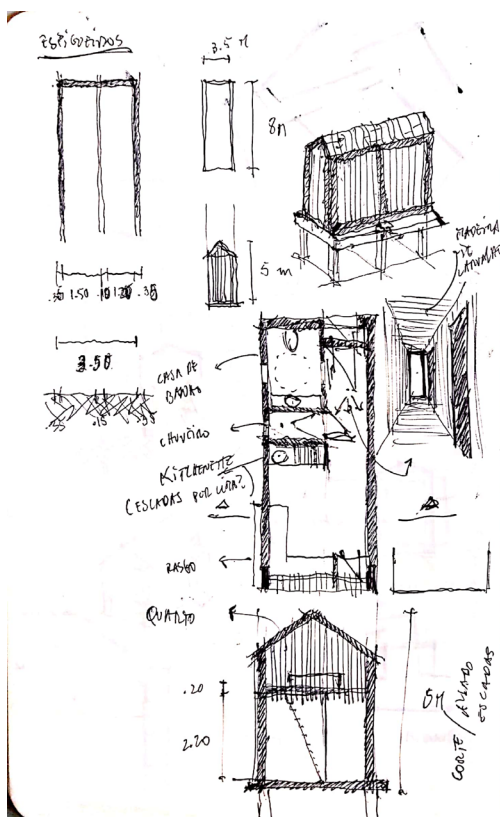 ESPIGUEIROS
3.5 M
8M
5 m
.35 1.50 .10 1.20 .35
3.50
.35 .15 .35
MADEIRA
DE
CASA DE
BANHO
CHUVEIRO
KITCHENETTE
(ESCADAS POR CIMA)
RASGO
QUARTO
.20
2.20
5M
CORTE / ALÇADO
ESCADAS